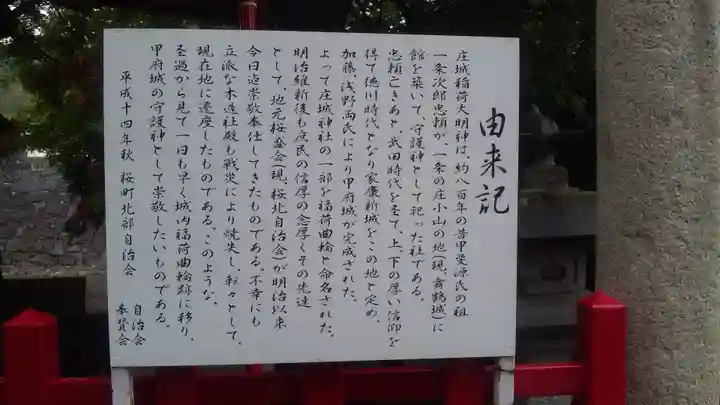 由来記
庄城稲荷大明神は、約八百年の昔甲斐源氏の祖
一条次郎忠頼が、一条の庄小山の地(現、舞鶴城)に
館を築いて、守護神として祀った社である。
忠頼亡きあと、武田時代を至て、上、下の厚い信仰を
得て徳川時代となり家康新城をこの地と定め、
加藤、浅野両氏により甲府城が完成された。
よって庄城神社の一部を稲荷曲輪と命名された。
明治維新後も庶民の信厚の念厚くその先達
として、地元桜〓会(現、桜北自治会)が明治以来
今日迄崇敬奉仕してきたものである。不幸にも
立派な木造社殿も戦災により焼失し、転々として、
現在地に遷座したものである。このような、
至過から見て一日も早く城内稲荷曲輪跡に移り、
甲府城の守護神として崇敬したいものである。
平成十四年秋 桜町北部自治会
自治会
奉賛会